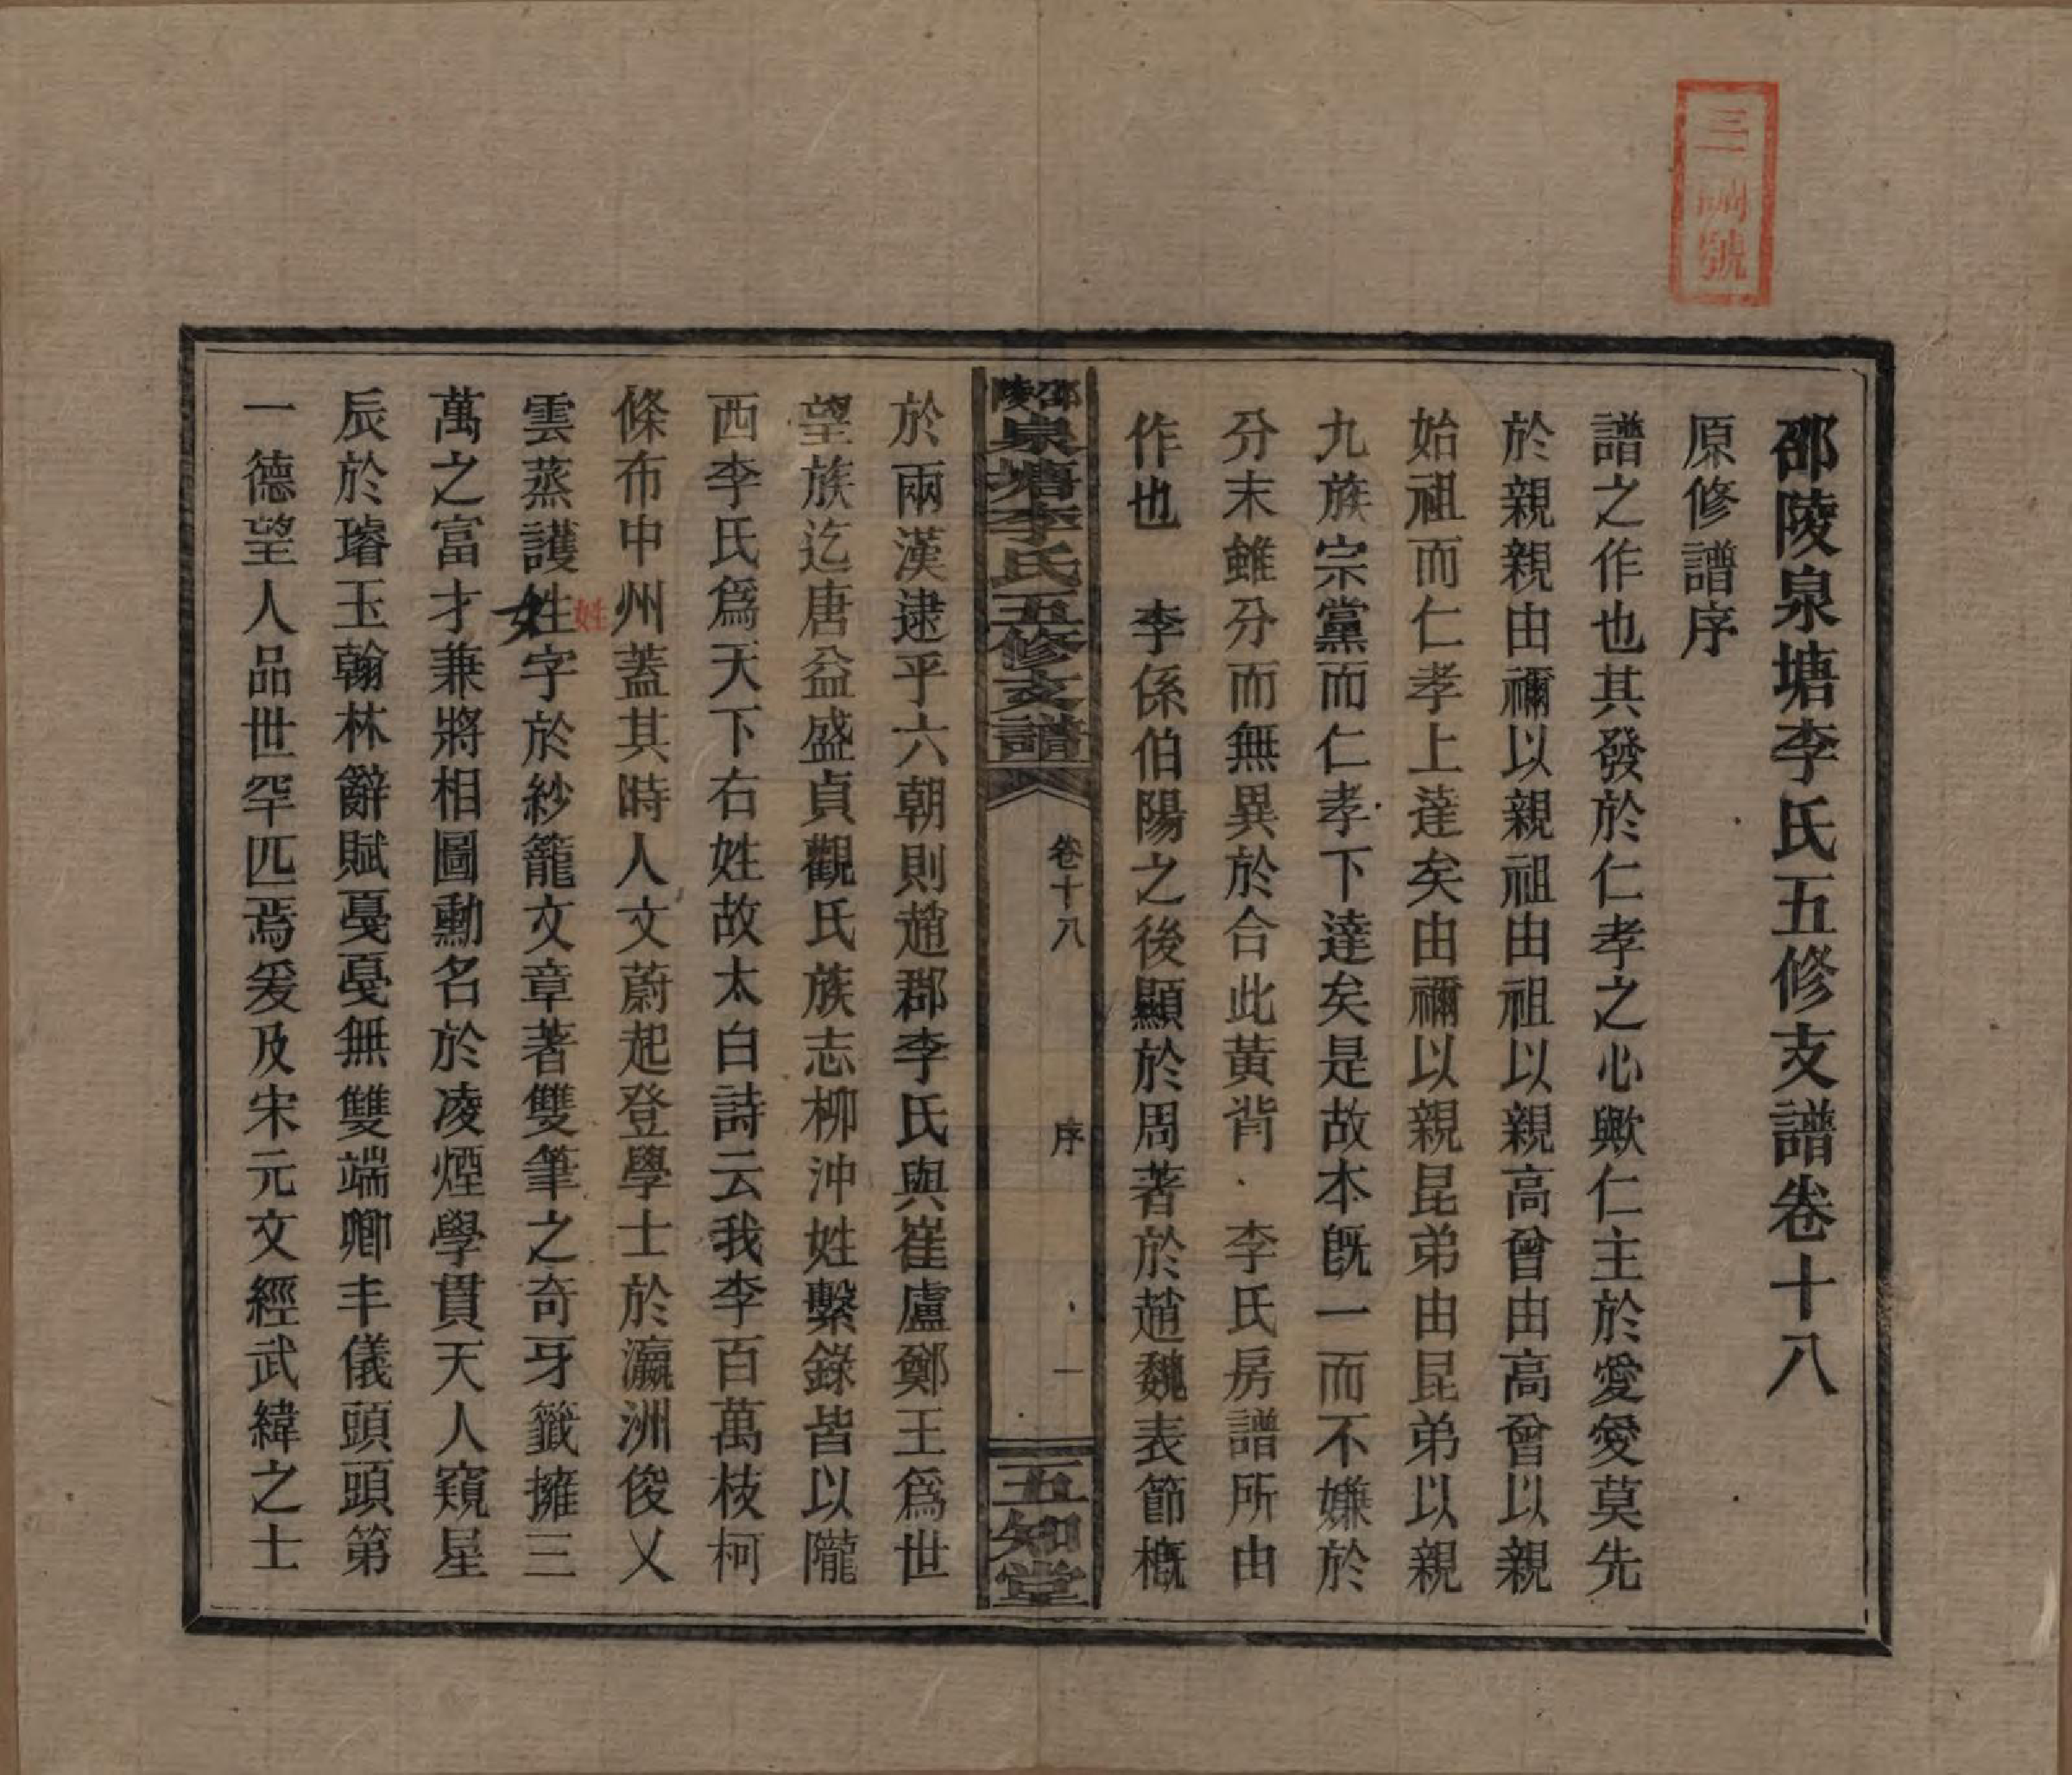 三 號
邵陵泉塘李氏五修支譜卷十八
原修譜序
譜之作也其發於仁孝之心歟仁主於愛愛莫先
於親親由禰以親祖由祖以親高曾由高曾以親
始祖而仁孝上達矣由禰以親昆弟由昆弟以親
九族宗黨而仁孝下達矣是故本旣一而不嫌於
分末雖分而無異於合此黃背李氏房譜所由
作也 李係伯陽之後顯於周著於趙魏表節槪
邵陵泉塘李氏五修支譜 卷十八 序 一 五知堂
於兩漢逮乎六朝則趙郡李氏與崔盧鄭王爲世
望族迄唐益盛貞觀氏族志柳沖姓繫錄皆以隴
西李氏爲天下右姓故太白詩云我李百萬枝柯
條布中州蓋其時人文蔚起登學士於瀛洲俊乂
姓
雲蒸護姓字於紗籠文章著雙筆之奇牙籤擁三
萬之富才兼將相圖勳名於凌煙學貫天人窺星
辰於璿玉翰林辭賦戞戞無雙端卿丰儀頭頭第
一德望人品世罕匹焉爰及宋元文經武緯之士